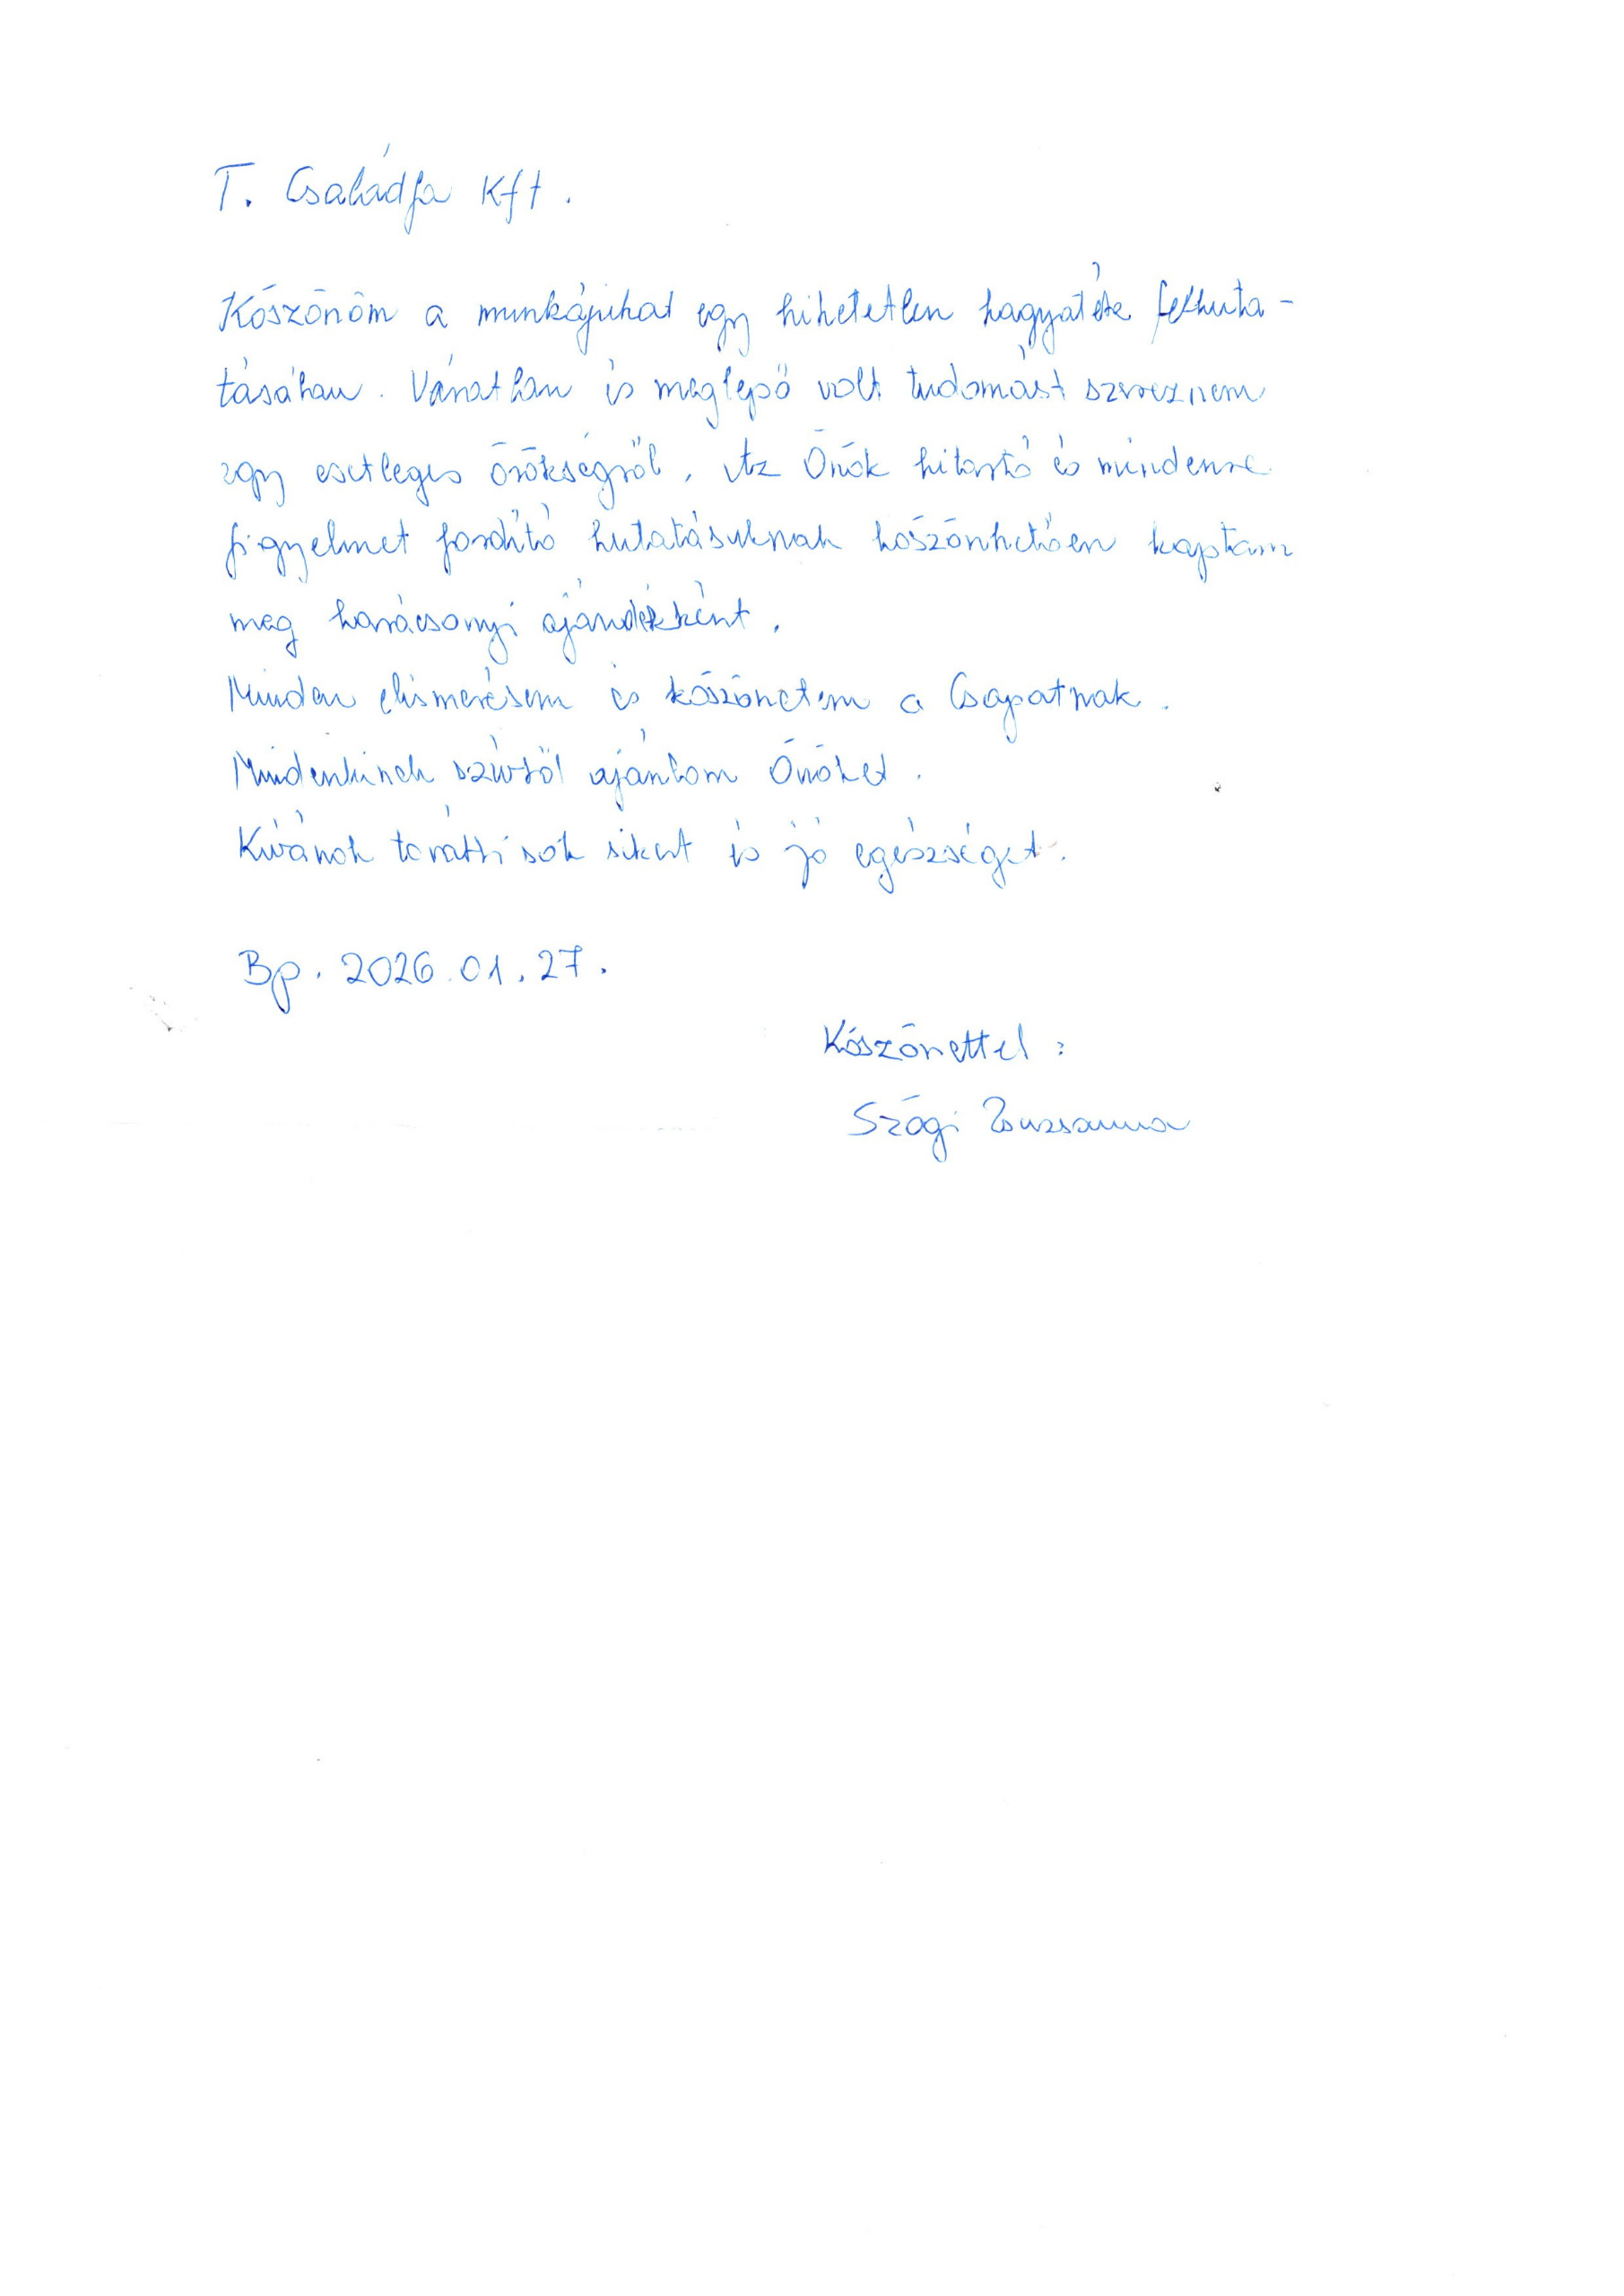 T. Családfa Kft.
Köszönöm a munkájukat egy hihetetlen hagyaték felkuta-
tásában. Váratlan és meglepő volt tudomást szereznem
egy esetleges örökségről. Az Önök kitartó és mindenre
figyelmet fordító kutatásuknak köszönhetően kaptam
meg karácsonyi ajándékként.
Minden elismerésem és köszönetem a Csapatnak.
Mindenkinek szívből ajánlom Önöket.
Kívánok további sok sikert és jó egészséget.
Bp. 2026.01.27.
Köszönettel:
Szögi Zsuzsanna